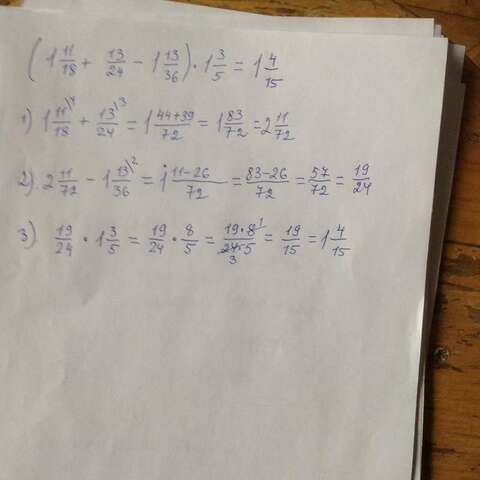 (1 11/18 + 13/24 - 1 13/36) · 1 3/5 = 1 4/15
1) 1 11\4/18 + 13\3/24 = 1 44+39/72 = 1 83/72 = 2 11/72
2) 2 11/72 - 1 13\2/36 = 1 11-26/72 = 83-26/72 = 57/72 = 19/24
3) 19/24 · 1 3/5 = 19/24 · 8/5 = 19·8 1/24·5 3 = 19/15 = 1 4/15